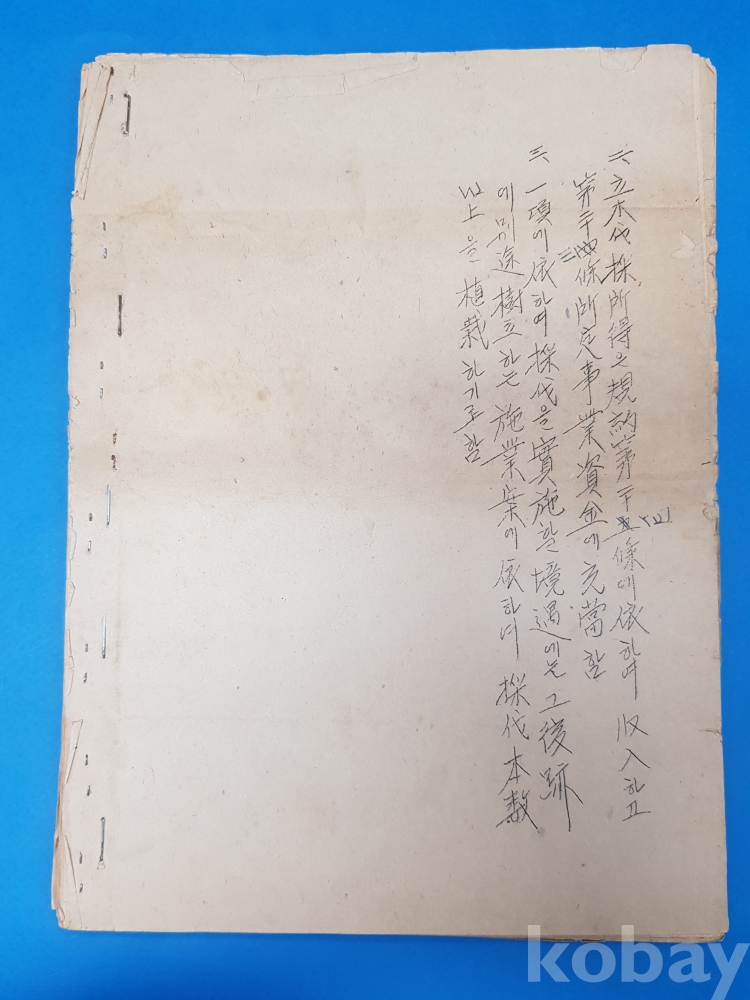 二、立木伐採所得은規約第二十四條에依하여 收入하고
第二十三條所定事業資金에充當함
三、一項에依하여採伐을實施할境遇에는그後跡
에別途樹立하는 施業案에依하여 採伐本數
以上을植栽하기로함
kobay